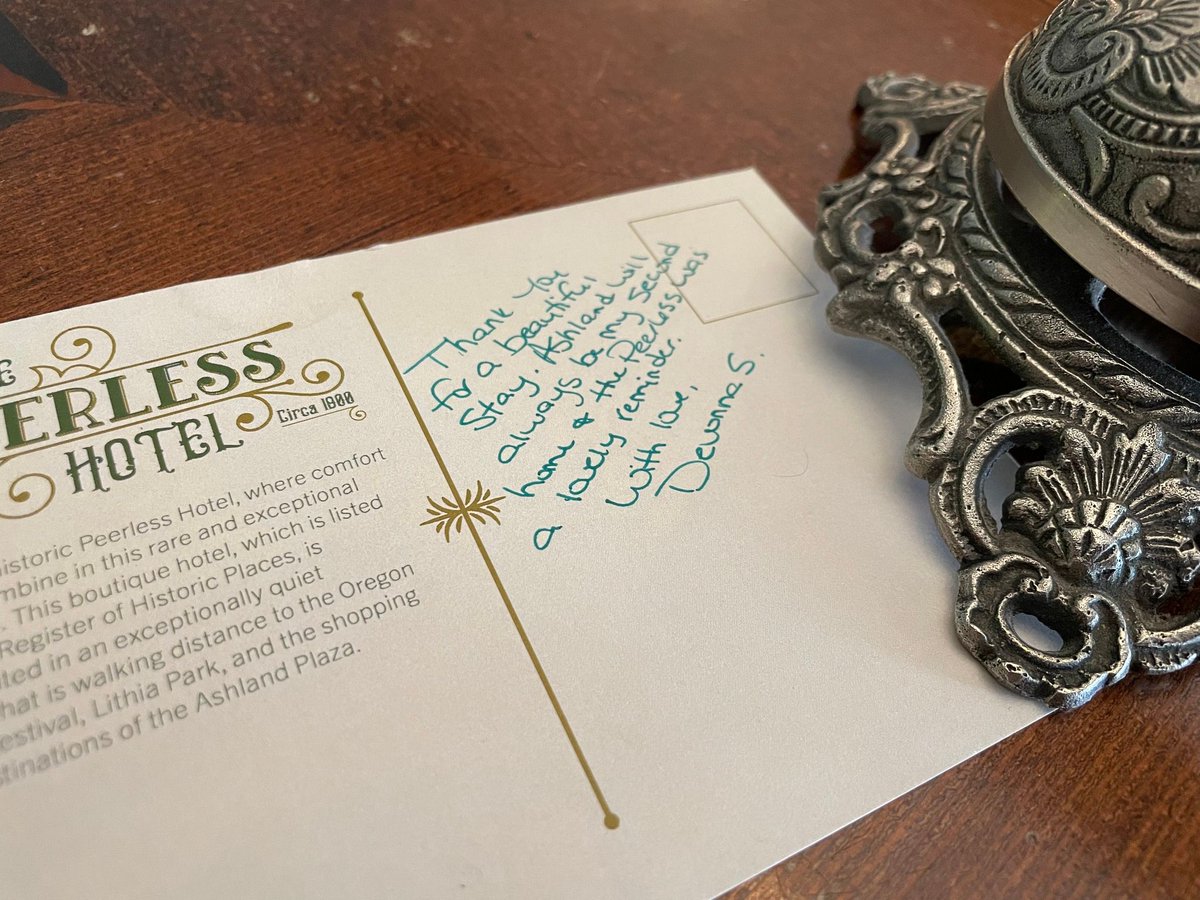 E
ERLESS
HOTEL
Circa 1900
istoric Peerless Hotel, where comfort
mbine in this rare and exceptional
. This boutique hotel, which is listed
Register of Historic Places, is
ted in an exceptionally quiet
hat is walking distance to the Oregon
estival, Lithia Park, and the shopping
stinations of the Ashland Plaza.
Thank You
for a beautiful
Stay. Ashland will
always be my second
home & the Peerless was
a lovely reminder.
With love,
Devonna S.